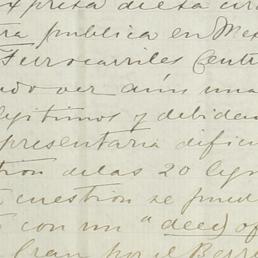 expresa dicta cir
tra publica en Mex
Ferrocarriles Centr
ver aún una
legitimos y debida
representaria dific
de las 20 leg
cuestion se pued
con un "deed of
Gran por el Berre